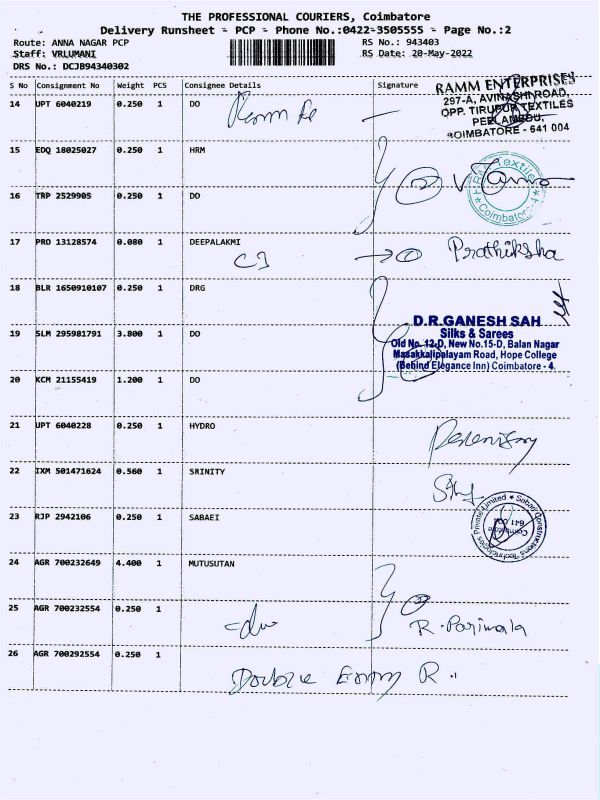 THE PROFESSIONAL COURIERS, Coimbatore
Delivery Runsheet - PCP - Phone No.:0422-3505555 - Page No.:2
Route: ANNA NAGAR PCP RS No.: 943403
Staff: VRLUMANI RS Date: 20-May-2022
DRS No.: DCJB94340302
S No Consignment No Weight PCS Consignee Details Signature
RAMM ENTERPRISES
297-A, AVINASHI ROAD,
OPP. TIRUPUR TEXTILES
PEELAMEDU,
COIMBATORE - 641 004
14 UPT 6040219 0.250 1 DO
15 EDQ 18025027 0.250 1 HRM
HRM Textile
Coimbatore-4
16 TRP 2529905 0.250 1 DO
17 PRO 13128574 0.080 1 DEEPALAKMI Prathiksha
18 BLR 1650910107 0.250 1 DRG
D.R.GANESH SAH
Silks & Sarees
19 SLM 295981791 3.800 1 DO
Old No. 12-D, New No.15-D, Balan Nagar
Masakkalipalayam Road, Hope College
(Behind Elegance Inn) Coimbatore - 4.
20 KCM 21155419 1.200 1 DO
21 UPT 6040228 0.250 1 HYDRO
22 IXM 501471624 0.560 1 SRINITY
23 RJP 2942106 0.250 1 SABAEI
Sabaei Constructions Technologies Private Limited
Coimbatore
641 004
24 AGR 700232649 4.400 1 MUTUSUTAN
25 AGR 700232554 0.250 1
R. Parimala
26 AGR 700292554 0.250 1
Double Entry R.